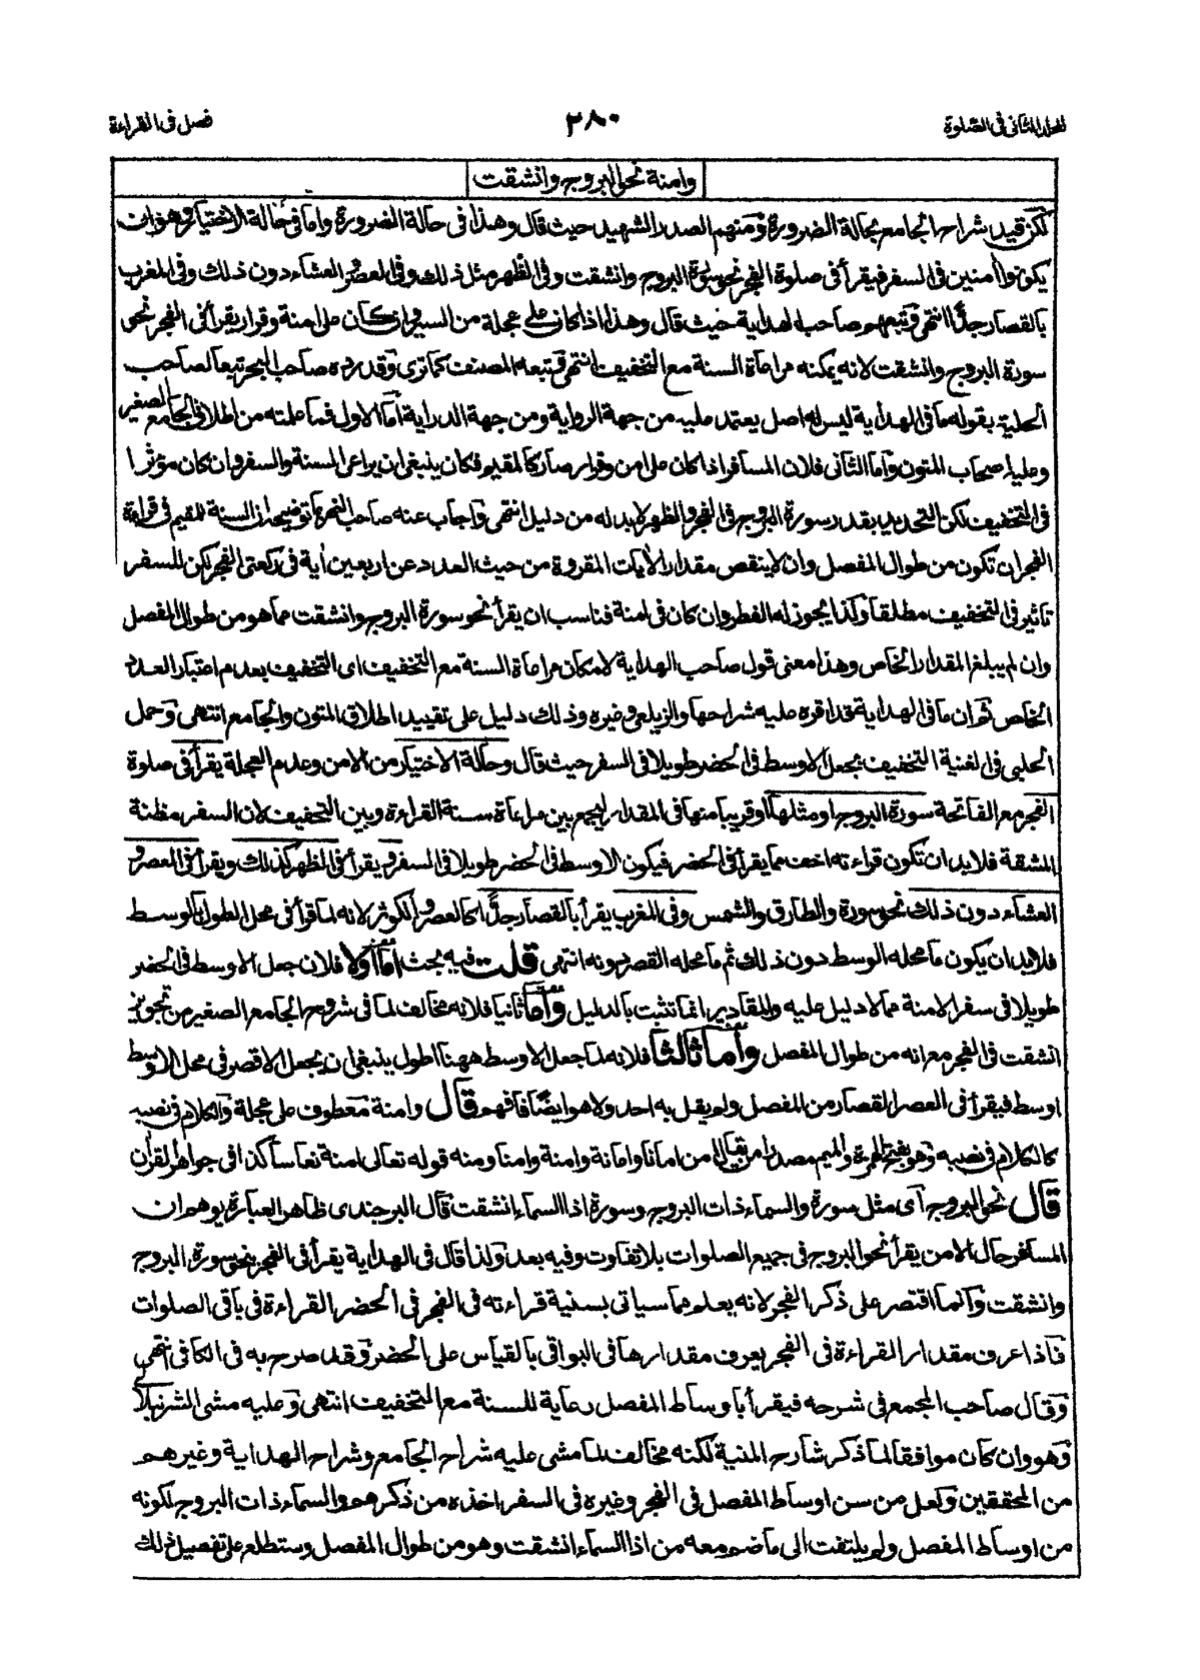 المجلد الثانى فى الصلوة
٢٨٠
فصل فى القراءة
وامنة نحو البروج وانشقت
لكن قيد شراح الجامع بحالة الضرورة ومنهم الصدر الشهيد حيث قال وهذا فى حالة الضرورة واما فى حالة الاختيار وهو ان
يكونوا آمنين فى السفر فيقرأ فى صلوة الفجر نحو سورة البروج وانشقت وفى الظهر مثل ذلك وفى العصر والعشاء دون ذلك وفى المغرب
بالقصار جدًّا انتهى وتبعهم صاحب الهداية حيث قال وهذا اذا كان على عجلة من السير وان كان على امنة وقرار يقرأ فى الفجر نحو
سورة البروج وانشقت لانه يمكنه مراعاة السنة مع التخفيف انتهى وتبعه المصنف كما ترى وقد رده صاحب البحر تبعا لصاحب
الحلية بقوله ما فى الهداية ليس له اصل يعتمد عليه من جهة الرواية ومن جهة الدراية اما الاول فما علمته من اطلاق الجامع الصغير
وعليه اصحاب المتون واما الثانى فلان المسافر اذا كان على امن وقرار صار كالمقيم فكان ينبغى ان يراعى السنة والسفر وان كان مؤثرا
فى التخفيف لكن التحديد بقدر سورة البروج فى الفجر والظهر لا بد له من دليل انتهى واجاب عنه صاحب النهر بما توضيحه ان السنة للمقيم فى قراءة
الفجر ان تكون من طوال المفصل وان لا ينقص مقدار الآيات المقروة من حيث العدد عن اربعين آية فى ركعتى الفجر لكن للسفر
تاثير فى التخفيف مطلقا ولذا يجوز له الفطر وان كان فى امنة فناسب ان يقرأ نحو سورة البروج وانشقت مما هو من طوال المفصل
وان لم يبلغ المقدار الخاص وهذا معنى قول صاحب الهداية لامكان مراعاة السنة مع التخفيف اى التخفيف بعدم اعتبار العدد
الخاص ثم ان ما فى الهداية قد اقره عليه شراحها والزيلعى وغيره وذلك دليل على تقييد اطلاق المتون والجامع انتهى وحمل
الحلبى فى الغنية التخفيف بجعل الاوسط فى الحضر طويلا فى السفر حيث قال وحالة الاختيار من الامن وعدم العجلة يقرأ فى صلوة
الفجر مع الفاتحة سورة البروج او مثلها او قريبا منها فى المقدار ليجمع بين مراعاة سنة القراءة وبين التخفيف لان السفر مظنة
المشقة فلا بد ان تكون قراءته اخف مما يقرأ فى الحضر فيكون الاوسط فى الحضر طويلا فى السفر ويقرأ فى الظهر كذلك ويقرأ فى العصر و
العشاء دون ذلك نحو سورة والطارق والشمس وفى المغرب يقرأ بالقصار جدًّا كالعصر والكوثر لانه لما قرأ فى محل الطول بالوسط
فلا بد ان يكون ما محله الوسط دون ذلك ثم ما محله القصر دونه انتهى قلت فيه بحث اما اولا فلان جعل الاوسط فى الحضر
طويلا فى سفر الامنة مما لا دليل عليه والمقادير انما تثبت بالدليل واما ثانيا فلانه مخالف لما فى شروح الجامع الصغير من تجويز
انشقت فى الفجر مع انه من طوال المفصل واما ثالثا فلانه لما جعل الاوسط ههنا اطول ينبغى ان يجعل الاقصر فى محل الاوسط
اوسط فيقرأ فى العصر القصار من المفصل ولم يقل به احد ولا هو ايضًا فافهم قال وامنة معطوف على عجلة والكلام فى نصبه
كالكلام فى نصبه وهو بفتح الهمزة والميم مصدر امن يقال امن امانا وامانة وامنة وامنا ومنه قوله تعالى امنة نعاسا كذا فى جواهر القرآن
قال نحو البروج اى مثل سورة والسماء ذات البروج وسورة اذا السماء انشقت قال البرجندى ظاهر العبارة يوهم ان
المسافر حال الامن يقرأ نحو البروج فى جميع الصلوات بلا تفاوت وفيه بعد ولذا قال فى الهداية يقرأ فى الفجر بنحو سورة البروج
وانشقت وانما اقتصر على ذكر الفجر لانه يعلم مما سياتى بسنية قراءته فى الفجر فى الحضر القراءة فى باقى الصلوات
فاذا عرف مقدار القراءة فى الفجر يعرف مقدارها فى البواقى بالقياس على الحضر وقد صرح به فى الكافى انتهى
وقال صاحب المجمع فى شرحه فيقرأ باوساط المفصل رعاية للسنة مع التخفيف انتهى وعليه مشى الشرنبلالى
وهو وان كان موافقا لما ذكر شارح المنية لكنه مخالف لما مشى عليه شراح الجامع وشراح الهداية وغيرهم
من المحققين ولعل من سن اوساط المفصل فى الفجر وغيره فى السفر اخذه من ذكرهم والسماء ذات البروج لكونه
من اوساط المفصل ولم يلتفت الى ما ضم معه من اذا السماء انشقت وهو من طوال المفصل وستطلع على تفصيل ذلك